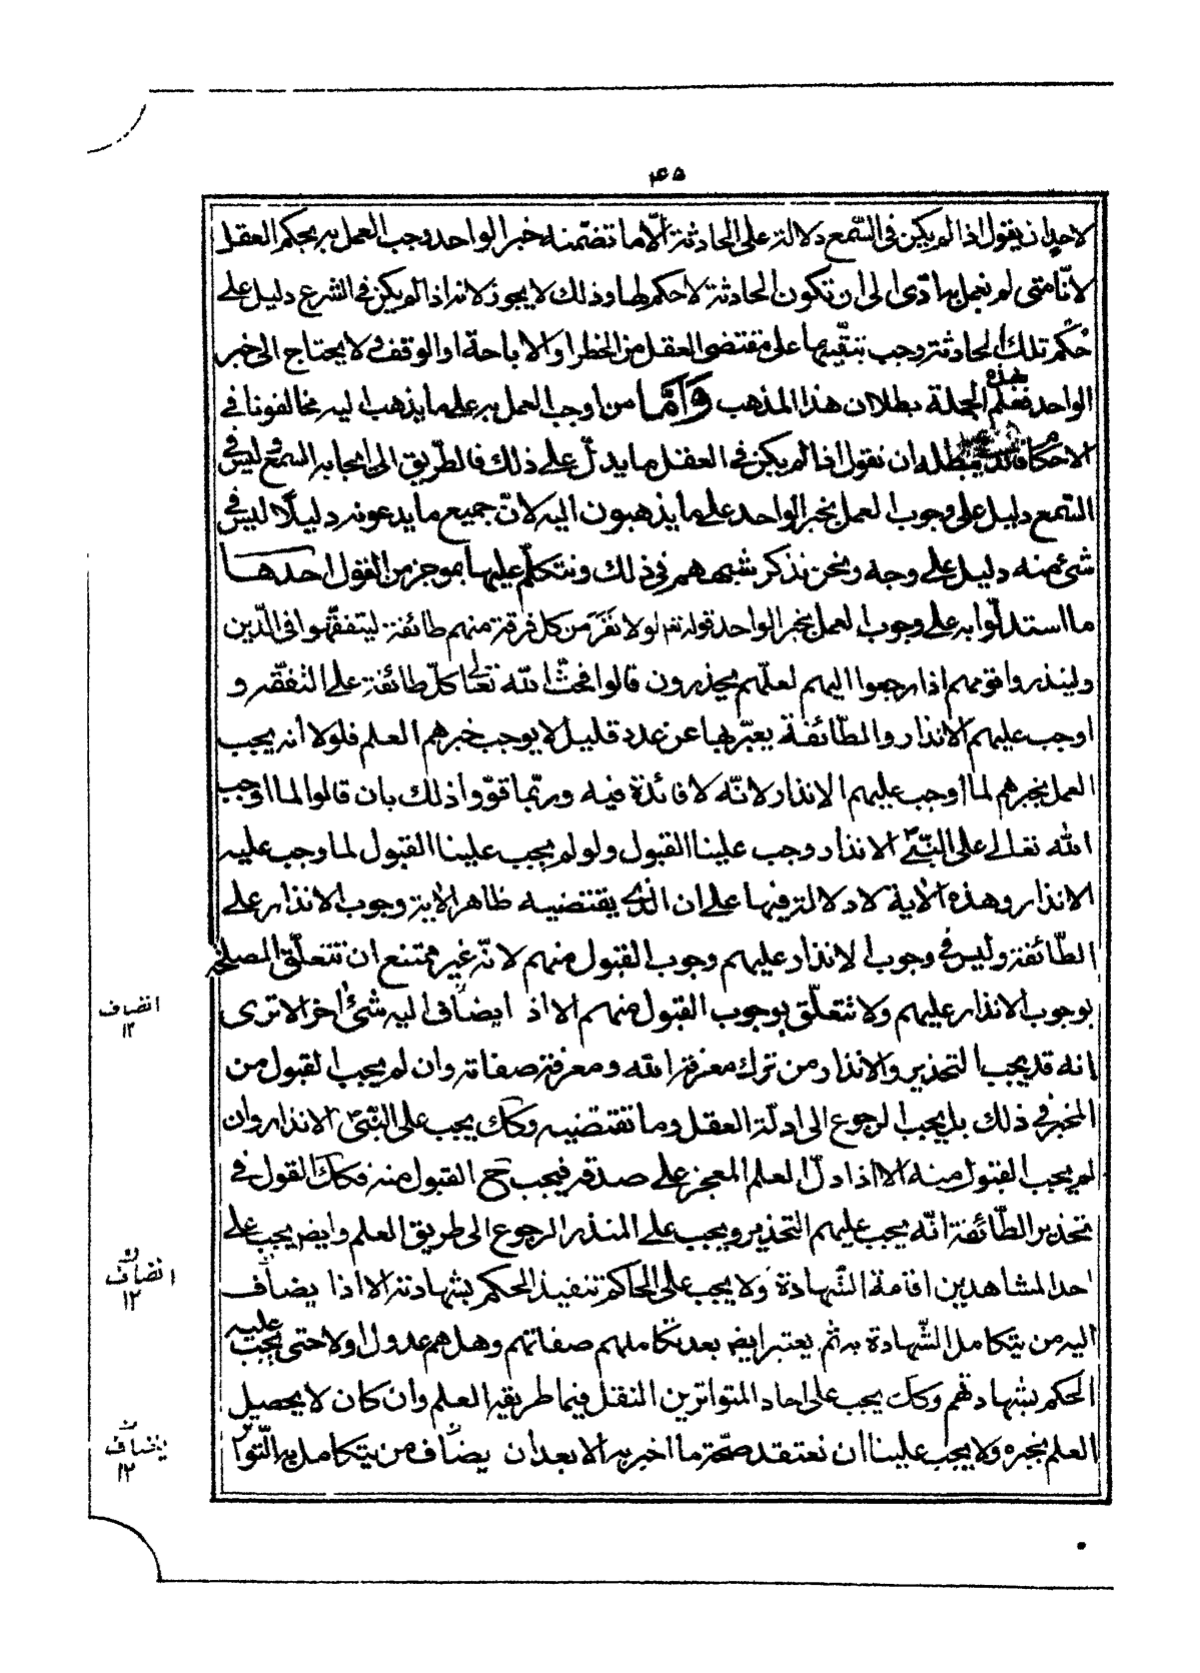 ٤٥
لاحد ان يقول اذا لم يكن فى السّمع دلالة على الحادثة الّا ما تضمّنه خبر الواحد وجب العمل به بحكم العقل
لانّا متى لم نعمل به ادّى الى ان تكون الحادثة لا حكم لها وذلك لا يجوز لانه اذا لم يكن فى الشرع دليل على
حُكم تلك الحادثة وجب تبقيتها على مقتضى العقل من الحظر او الاباحة او الوقف ولا يحتاج الى خبر
الواحد فعلم بهذه الجملة بطلان هذا المذهب وَاَمَّا من اوجب العمل به على ما يذهب اليه مخالفونا فى
الاحكام فالذى يبطله ان نقول اذا لم يكن فى العقل ما يدلّ على ذلك فالطّريق الى ايجابه السّمع وليس فى
السّمع دليل على وجوب العمل بخبر الواحد على ما يذهبون اليه لانّ جميع ما يدعونه دليلًا ليس فى
شئ منه دليل على وجه ونحن نذكر شبههم فى ذلك ونتكلّم عليها بموجز من القول احدها
ما استدلّوا به على وجوب العمل بخبر الواحد قوله تعم لولا نَفَرَ من كل فرقة منهم طائفة ليتفقّهوا فى الدّين
ولينذروا قومهم اذا رجعوا اليهم لعلّهم يحذرون قالوا فحثّ الله تعالى كلّ طائفة على التفقّه و
اوجب عليهم الانذار والطّائفة يعبّر بها عن عدد قليل لا يوجب خبرهم العلم فلولا انه يجب
العمل بخبرهم لما اوجب عليهم الانذار لانّه لا فائدة فيه وربّما قوّوا ذلك بان قالوا لما اوجب
الله تعالى على النّبيّ الانذار وجب علينا القبول ولو لم يجب علينا القبول لما وجب عليه
الانذار وهذه الاية لا دلالة فيها على ان الذى يقتضيه ظاهر الاية وجوب الانذار على
الطّائفة وليس فى وجوب الانذار عليهم وجوب القبول منهم لانّه غير ممتنع ان تتعلّق المصلحة
بوجوب الانذار عليهم ولا تتعلّق بوجوب القبول منهم الا اذ ايضاف اليه شئ اخر الا ترى
انه قد يجب التحذير والانذار من ترك معرفة الله ومعرفة صفاته وان لم يجب القبول من
المخبر فى ذلك بل يجب الرجوع الى ادلّة العقل وما تقتضيه وكك يجب على النّبيّ الانذار وان
لم يجب القبول منه الا اذا دلّ العلم المعجز على صدقه فيجب ح القبول منه فكك القول فى
تحذير الطّائفة انّه يجب عليهم التحذير ويجب على المنذر الرجوع الى طريق العلم وايض يجب على
احد المشاهدين اقامة الشّهادة ولا يجب على الحاكم تنفيذ الحكم بشهادته الا اذا يضاف
اليه من يتكامل الشّهادة به ثم يعتبر ايض بعد تكاملهم صفاتهم وهل هم عدول اولا حتى يجب عليه
الحكم بشهادتهم وكك يجب على احاد المتواترين النقل فيما طريقه العلم وان كان لا يحصل
العلم بخبره ولا يجب علينا ان نعتقد صحّة ما اخبر به الا بعد ان يضاف من يتكامل به التّواتر
انضاف
١٢
انضاف
١٢
ينضاف
١٢